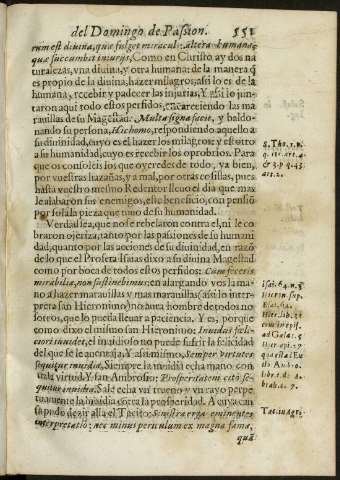 del Domingo de Passion. 551
rum est diuina, quæ fulget miraculis: altera humana,
quæ succumbit iniurijs, Como en Christo ay dos na
turalezas, vna diuina, y otra humana: de la manera q̃
es propio de la diuina, hazer milagros, assi lo es de la
humana, recebir y padecer las injurias, Y assi lo jun-
taron aqui todo estos perfidos, encareciendo las ma
rauillas de su Magestad: Multa signa facit, y baldo-
nando su persona, Hic homo, respondiendo aquello a
su diuinidad, cuyo es el hazer los milagros; y esto otro
a su humanidad, cuyo es recebir los oprobrios. Para
que os consoleis los que oyeredes de todo, ya bien,
por vuestras hazañas, y a mal, por otras cosillas, pues
hasta vuestro mesmo Redentor lleuo el dia que mas
le alabaron sus enemigos, este beneficio, con pensió
por sola la pieza que tuuo de su humanidad.
Verdad sea, que no se rebelaron contra el, ni le co
braron ojeriza, tanto por las passiones de su humani
dad, quanto por las acciones de su diuinidad, en razõ
de lo que el Profeta Isaias dixo a su diuina Magestad
como por boca de todos estos perfidos: Cum feceris
mirabilia, non sustinebimus: en alargando vos la ma-
no a hazer marauillas y mas marauillas (assi lo inter-
preta san Hieronimo) no aura hombre de todos no
sotros, que lo pueda lleuar a paciencia. Y es, porque
como dixo el mismo san Hieronimo: Inuidus fœlici-
tiori inuidet, el inuidioso no puede sufrir la felicidad
del que se le auentaja, Y assi mismo, Semper virtutes
sequitur inuidia, Siempre la inuidia echa mano con
tra la virtud. Y san Ambrosio: Prosperitatem citò se-
quitur inuidia, Sale echa vn trueno y vn rayo perpe
tuamente la inuidia contra la prosperidad. A cuya cau
sa pudo dezir alla el Tacito: Sinistra erga eminentes
interpretatio; nec minus periculum ex magna fama,
quã
S. Tho. 1. p.
q. 16. art. 4.
& 3. p. q. 43.
art. 2.
Isai. 64. n. 3
Hieron. sup.
Esai. 64.
Tac. in Agri.